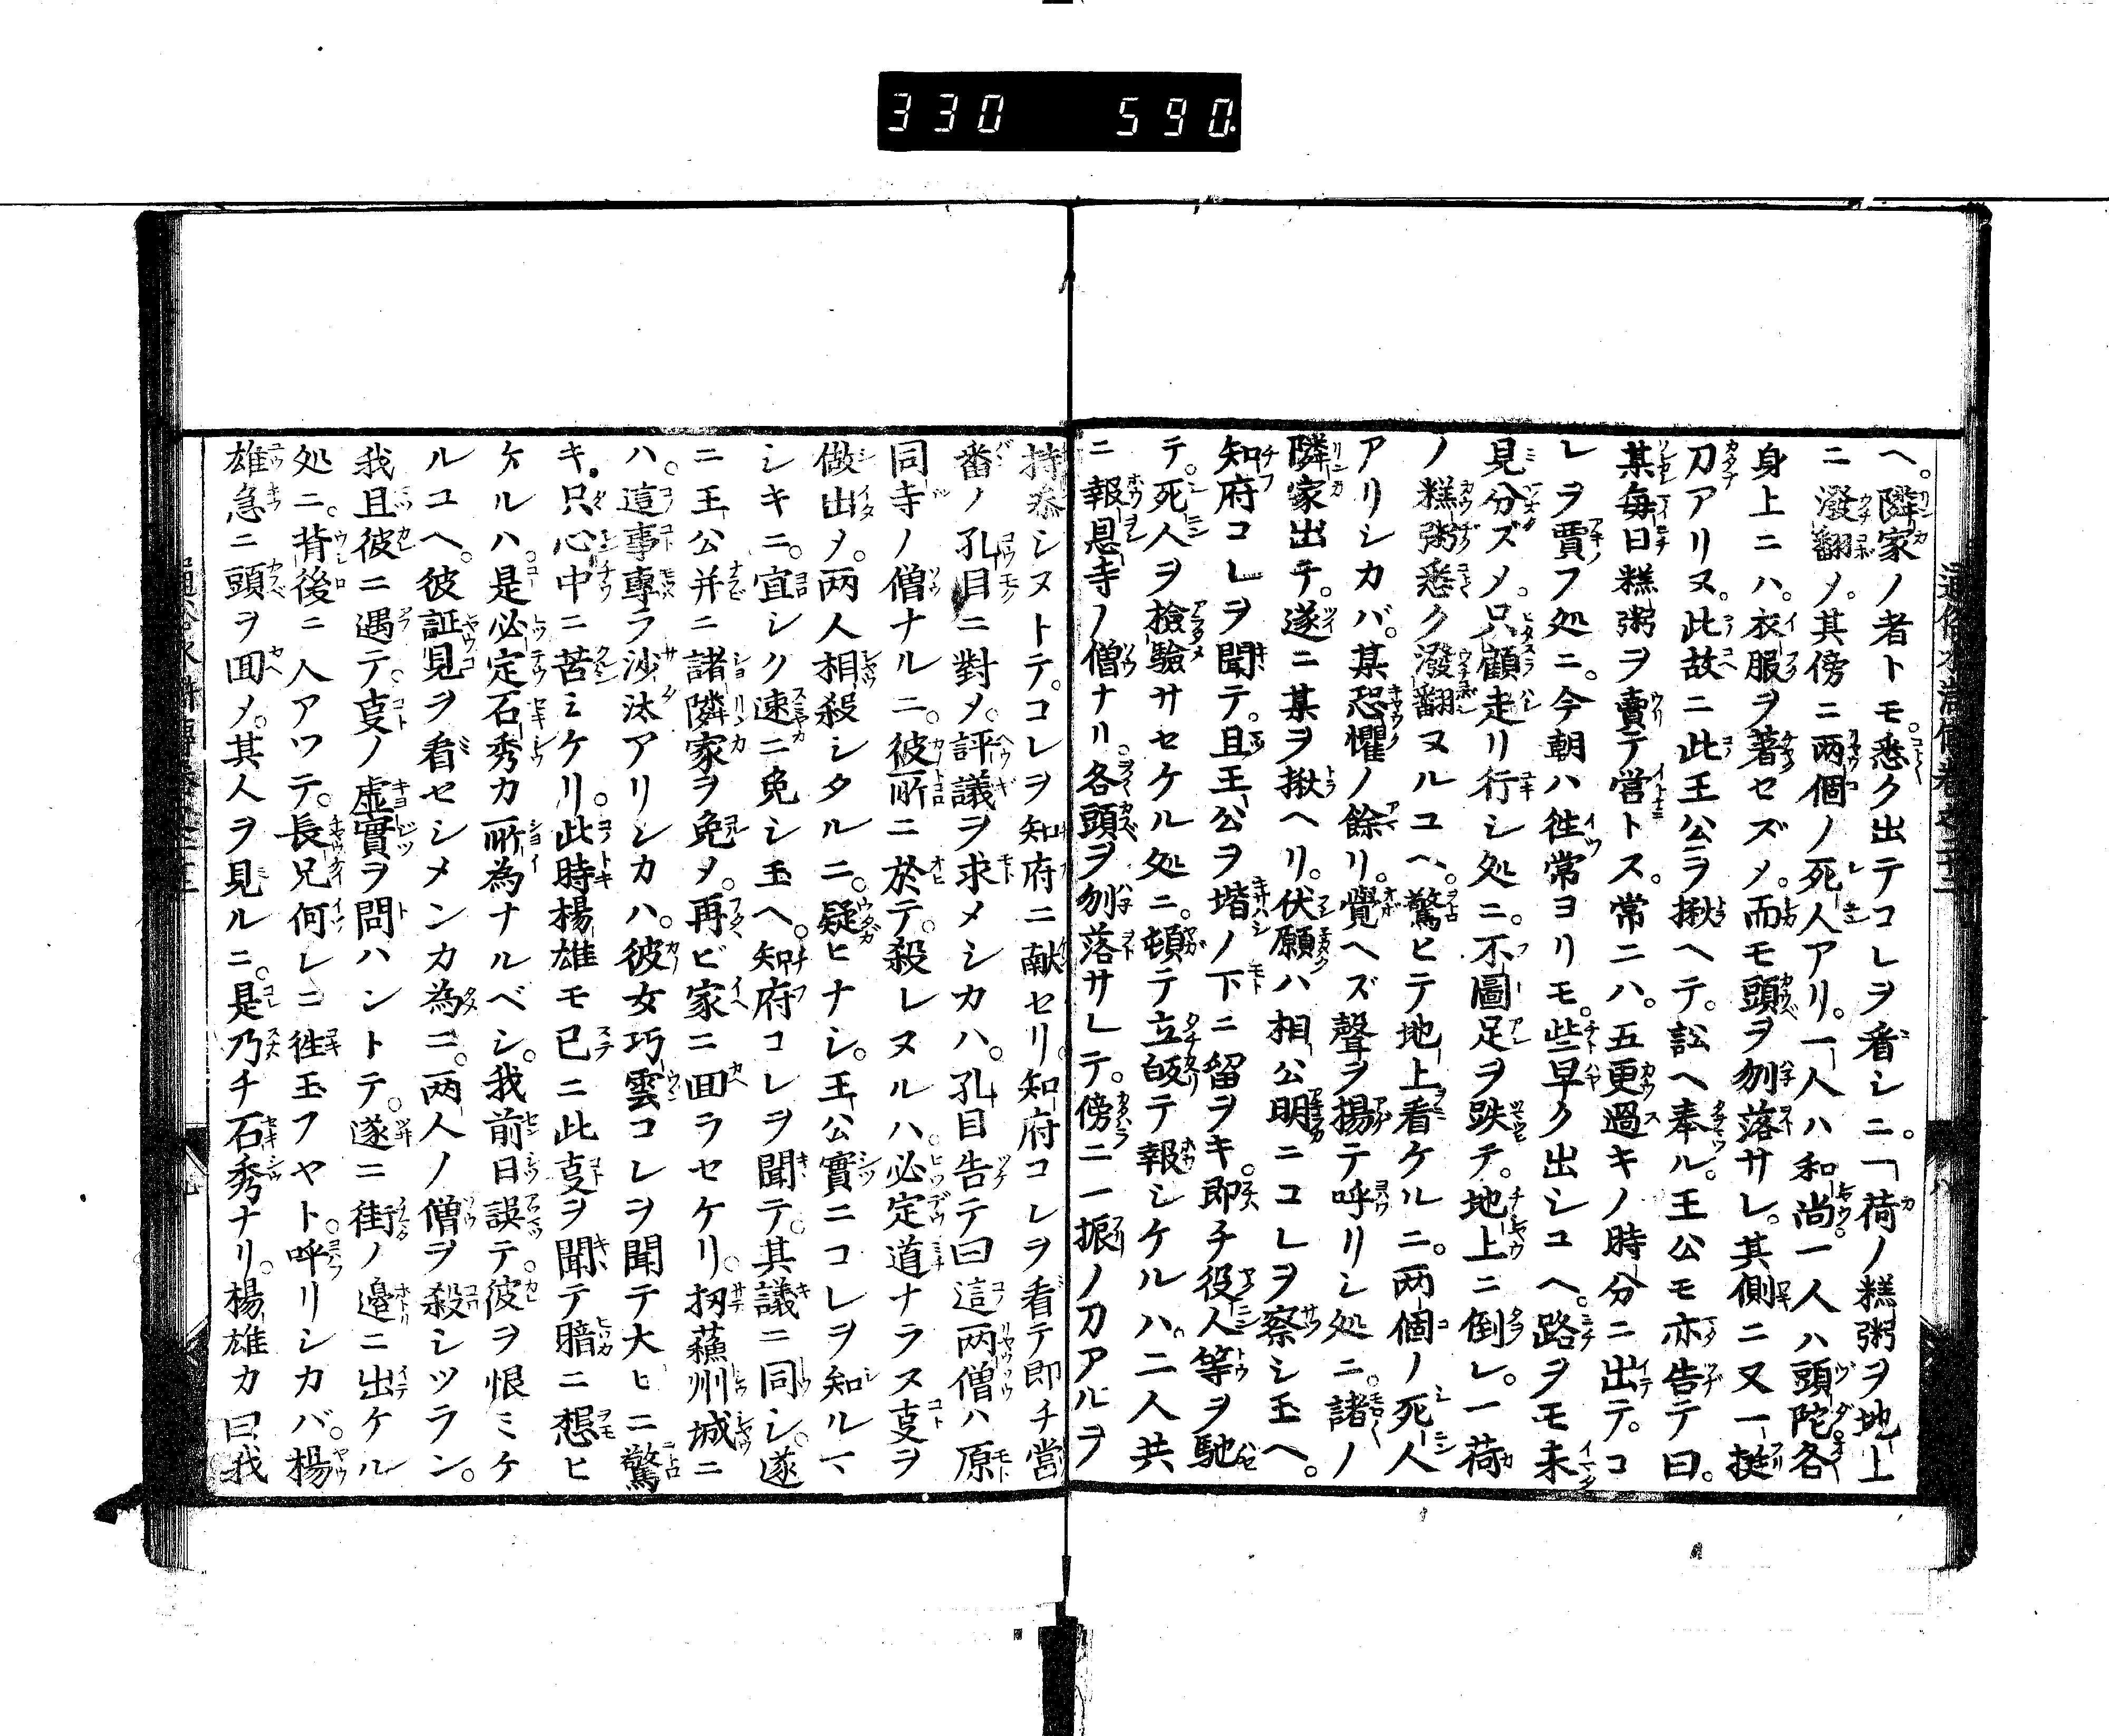 330 590.
ヘ。隣家ノ者トモ。悉ク出テコレヲ看シニ。一荷ノ糕粥ヲ地上
ニ潑翻メ。其傍ニ两個ノ死人アリ。一人ハ和尚。一人ハ頭陀。各
身上ニハ。衣服ヲ著セズメ。而モ頭ヲ刎落サレ。其側ニ又一挺
刀アリヌ。此故ニ此王公ヲ揪ヘテ。訟ヘ奉ル。王公モ亦告テ曰。
某毎日糕粥ヲ賣テ営トス。常ニハ。五更過キノ時分ニ出テ。コ
レヲ賈フ処ニ。今朝ハ徃常ヨリモ。些早ク出シユヘ。路ヲモ未
見分ズメ。只顧走リ行シ処ニ。不圖足ヲ跌テ。地上ニ倒レ。一荷
ノ糕粥悉ク潑翻ヌルユヘ。驚ヒテ地上看ケルニ。两個ノ死人
アリシカバ。某恐懼ノ餘リ。覺ヘズ聲ヲ揚テ呼リシ処ニ。諸ノ
隣家出テ。遂ニ某ヲ揪ヘリ。伏願ハ相公明ニコレヲ察シ玉ヘ。
知府コレヲ聞テ。且王公ヲ堦ノ下ニ留ヲキ。即チ役人等ヲ馳
テ。死人ヲ撿驗サセケル処ニ。頓テ立皈テ報シケルハ。二人共
ニ報恩寺ノ僧ナリ。各頭ヲ刎落サレテ。傍ニ一振ノ刀アルヲ
持参シヌトテ。コレヲ知府ニ献セリ。知府コレヲ看テ即チ當
番ノ孔目ニ對メ。評議ヲ求メシカハ。孔目告テ曰這两僧ハ原
同寺ノ僧ナルニ。彼所ニ於テ。殺レヌルハ。必定道ナラス㕝ヲ
做出メ。两人相殺シタルニ。疑ヒナシ。王公實ニコレヲ知ルマ
シキニ。宜シク速ニ免シ玉ヘ。知府コレヲ聞テ。其議ニ同シ。遂
ニ王公并ニ諸隣家ヲ免メ。再ビ家ニ回ラセケリ。扨蘓州城ニ
ハ。這事專ラ沙汰アリシカハ。彼女巧雲コレヲ聞テ大ヒニ驚
キ。只心中ニ苦ミケリ。此時楊雄モ已ニ此㕝ヲ聞テ暗ニ想ヒ
ケルハ。是必定石秀カ所為ナルベシ。我前日誤テ。彼ヲ恨ミケ
ルユヘ。彼証見ヲ看セシメンカ為ニ。两人ノ僧ヲ殺シツラン。
我且彼ニ遇テ。㕝ノ虚實ヲ問ハントテ。遂ニ街ノ邉ニ出ケル
処ニ。背後ニ人アツテ。長兄何レニ徃玉フヤト。呼リシカバ。楊
雄急ニ頭ヲ回メ。其人ヲ見ルニ。是乃チ石秀ナリ。楊雄カ曰我